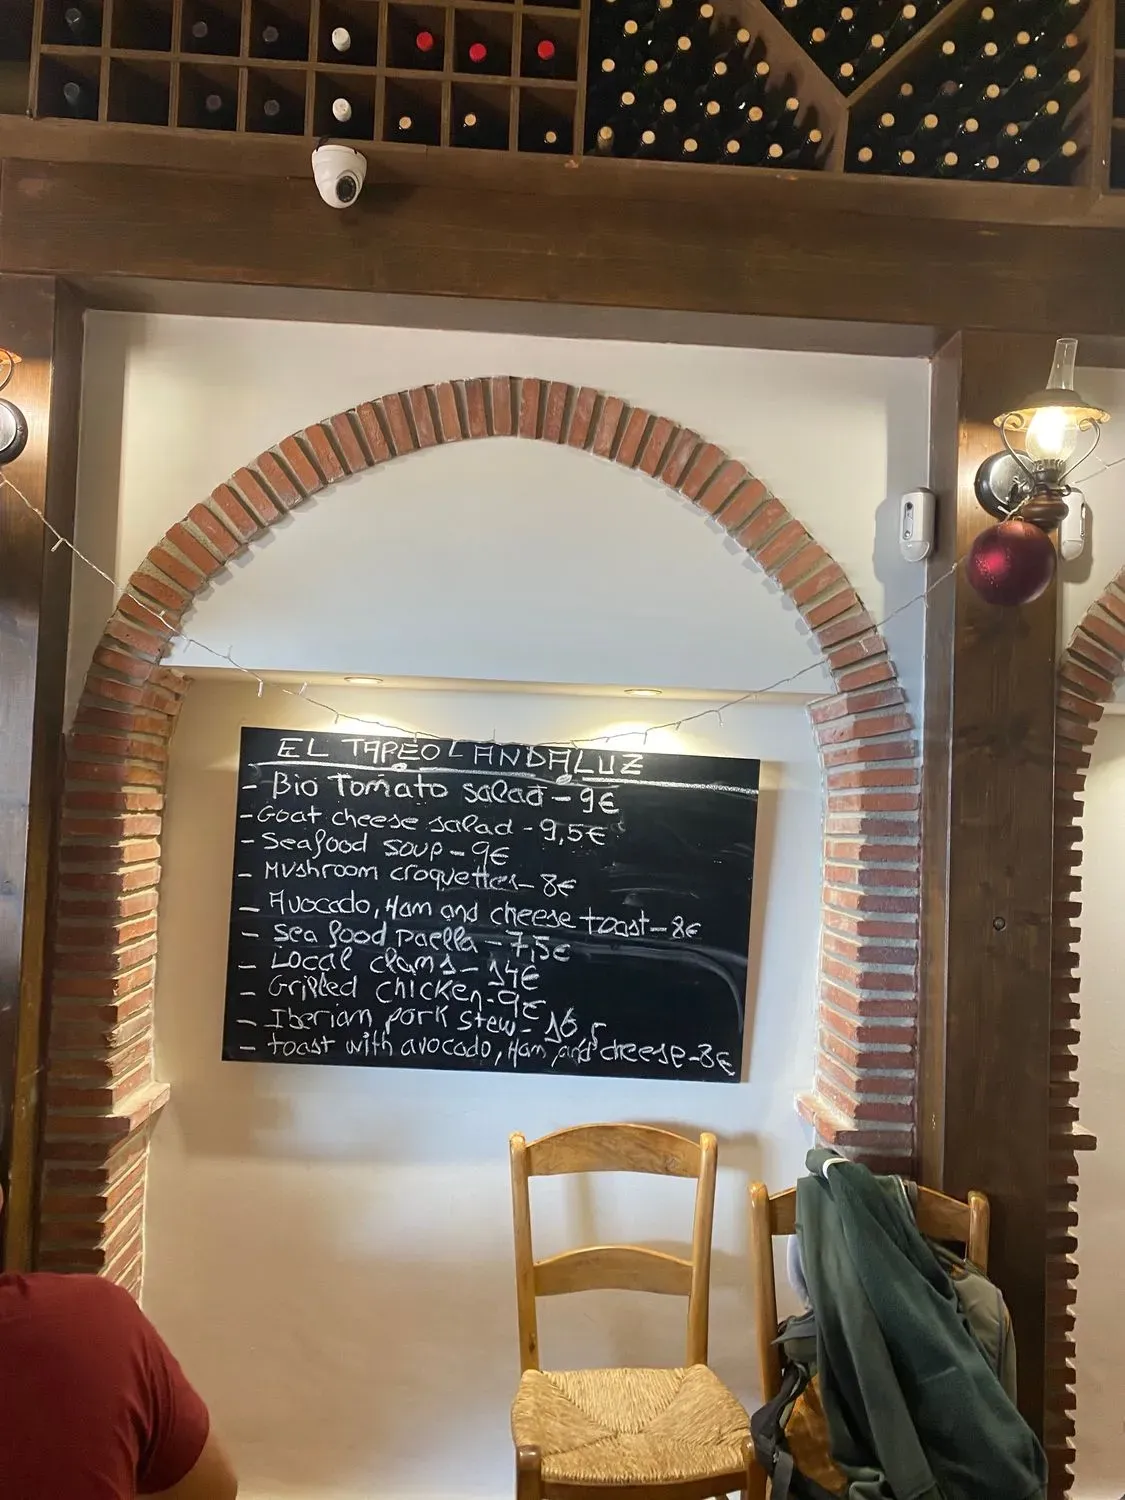 EL TAPEO ANDALUZ
- Bio Tomato salad - 9€
- Goat cheese salad - 9,5€
- Seafood soup - 9€
- Mushroom croquettes - 8€
- Avocado, Ham and cheese toast - 8€
- Sea food paella - 7,5€
- Local clams - 14€
- Grilled chicken - 9€
- Iberian pork stew - 16,5
- toast with avocado, Ham and cheese - 8€